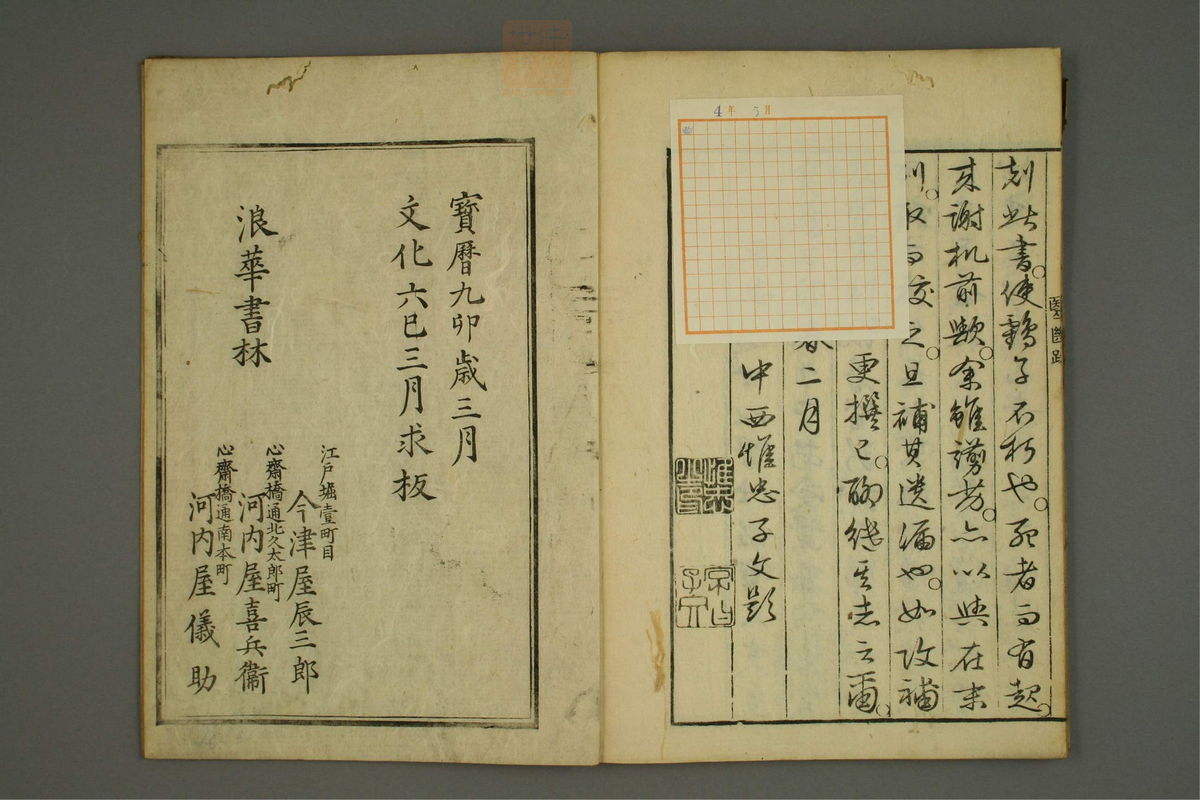 刻此書。使鶴子不朽也。死者而有起。
来謝机前歟。余雖謭劣。亦以與在末
列。取而校之。且補其遺漏也。如改補
更撰已。酬継其志云爾。
春二月
中西惟忠子文題
醫断跋
4年 5月
寶暦九卯歳三月
文化六巳三月求板
浪華書林
江戸堀壹町目
今津屋辰三郎
心齋橋通北久太郎町
河内屋喜兵衞
心齋橋通南本町
河内屋儀助